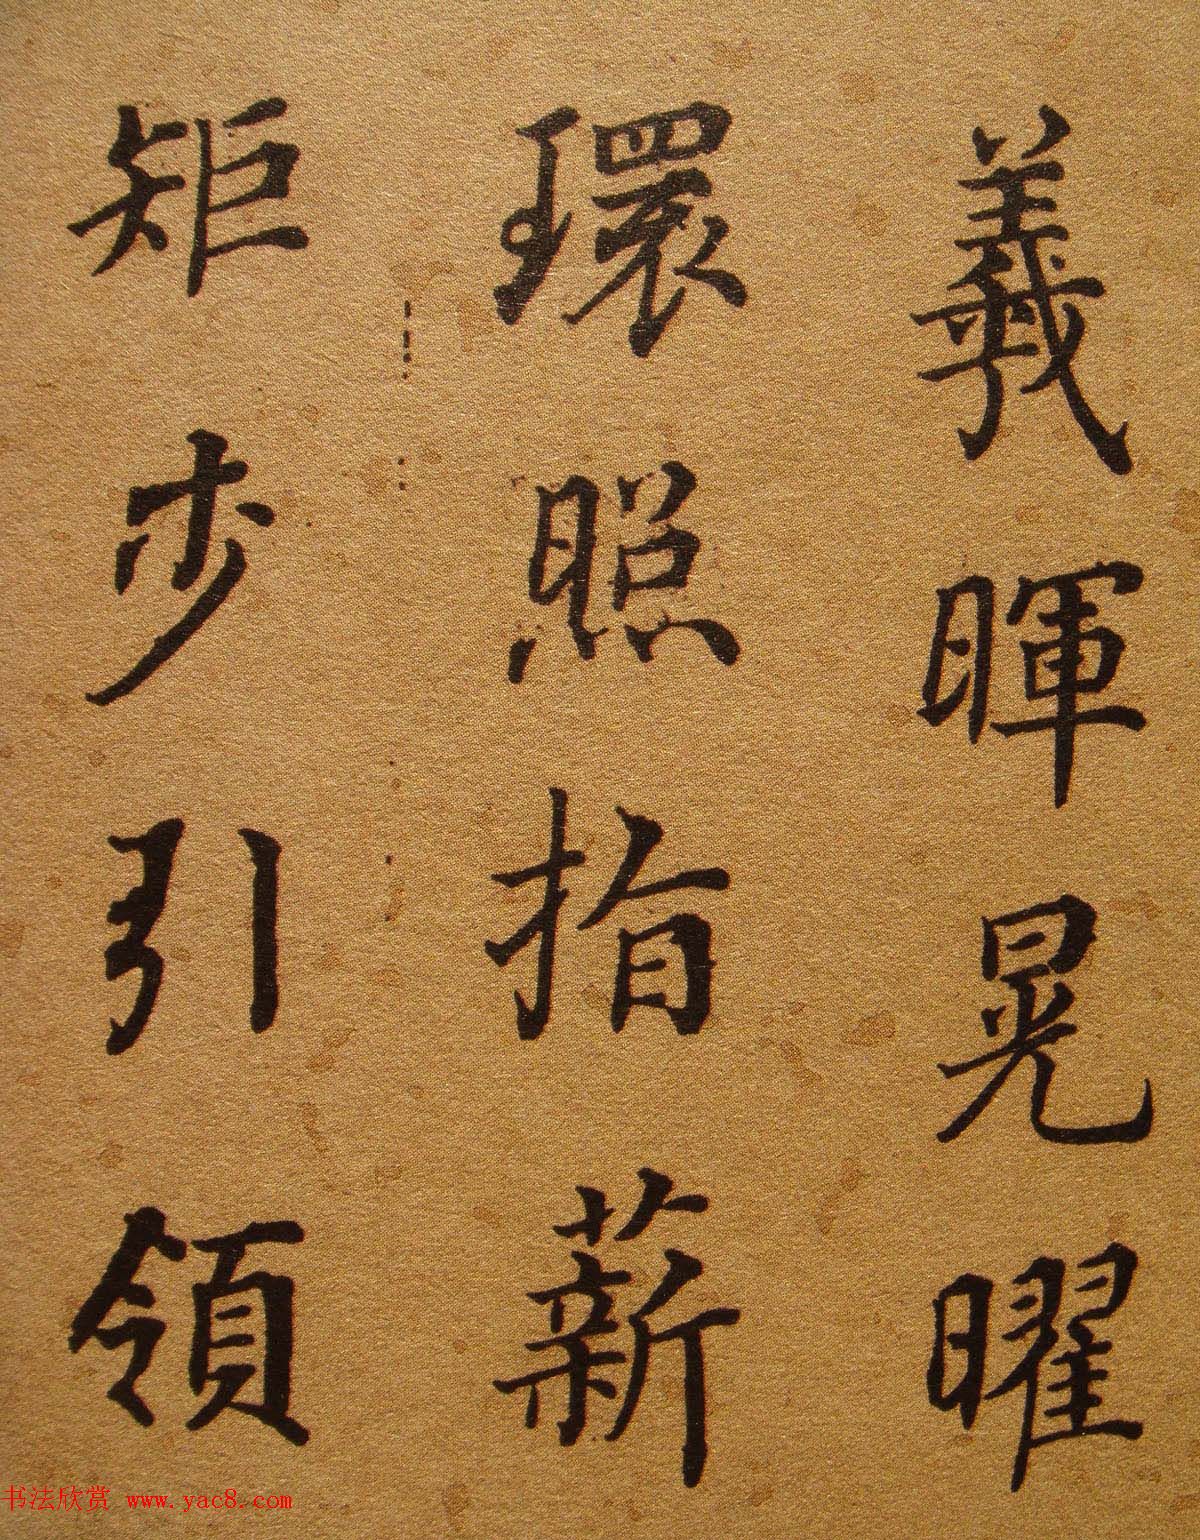 羲暉晃曜
環照指薪
矩步引領
书法欣赏 www.yac8.com